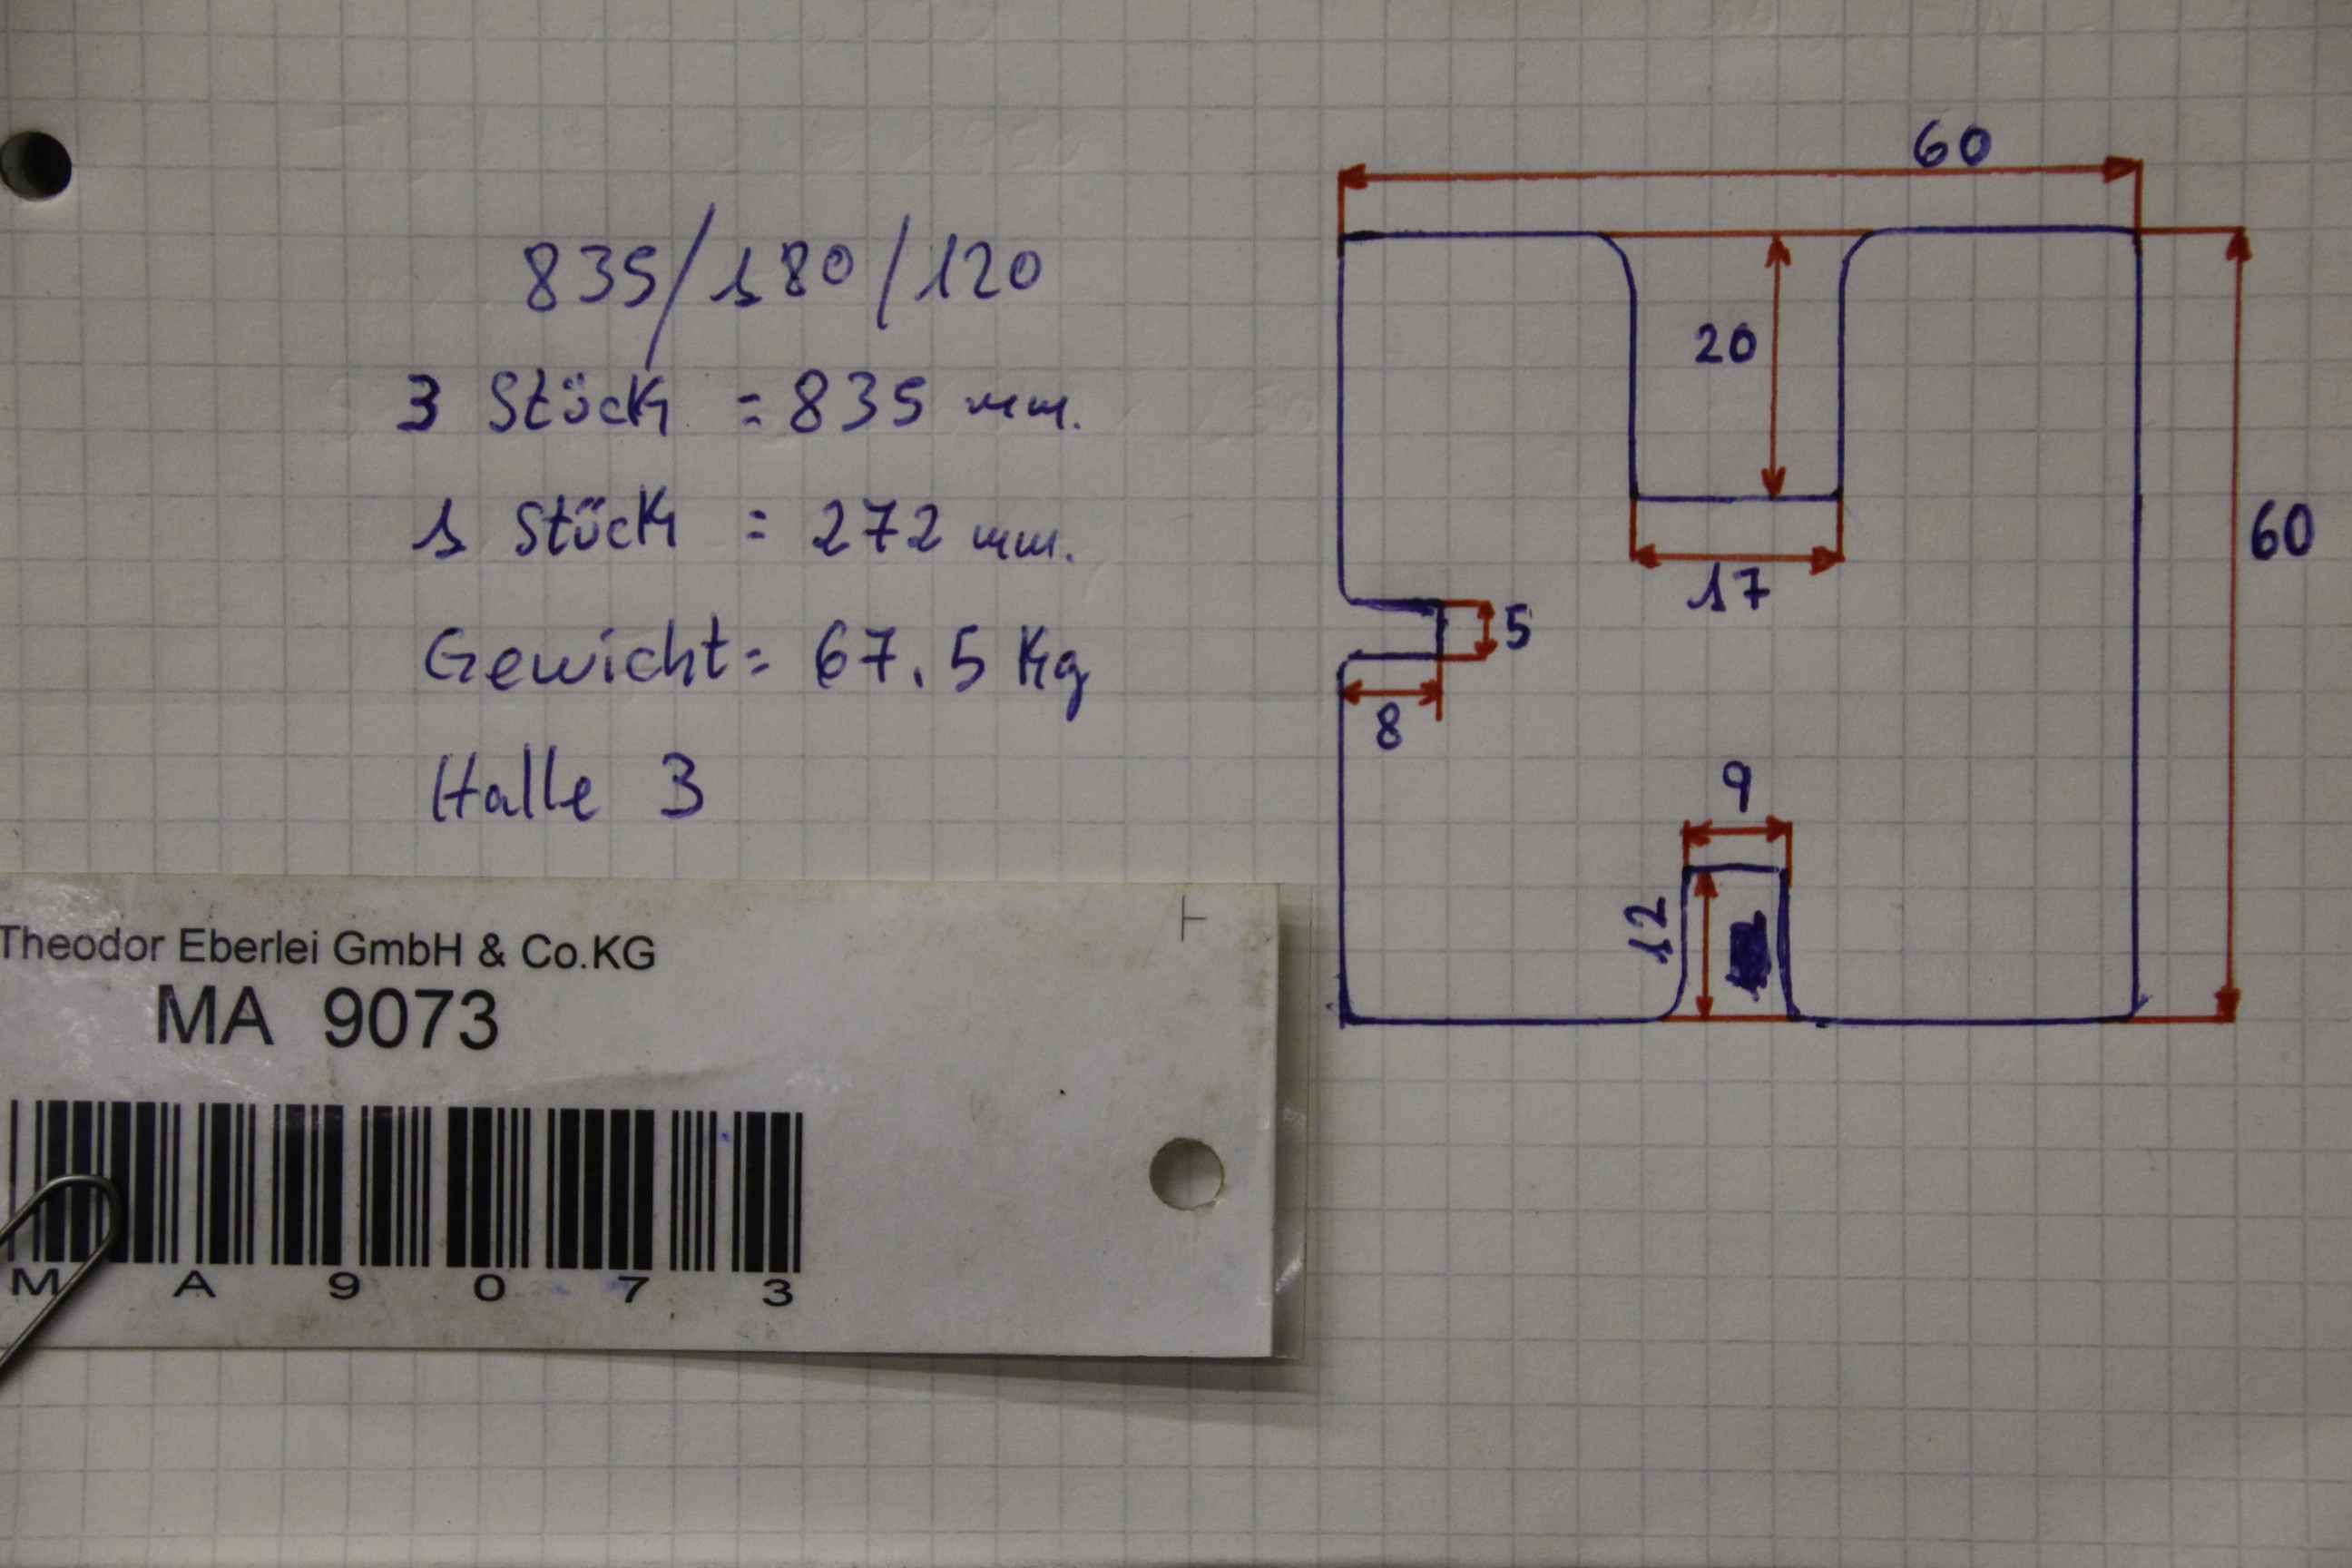 835/180/120
3 Stück = 835 mm.
1 Stück = 272 mm.
Gewicht = 67.5 Kg
Halle 3
60
20
60
17
5
8
9
12
Theodor Eberlei GmbH & Co.KG
MA 9073
M A 9 0 7 3